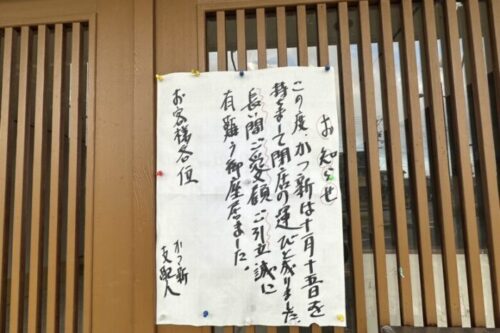 お知らせ
この度、かつ新は十月十五日を
持ちまして閉店の運びと成りました。
長い間ご愛顧ご引立誠に
有難う御座居ました。
お客様各位
かつ新
支配人